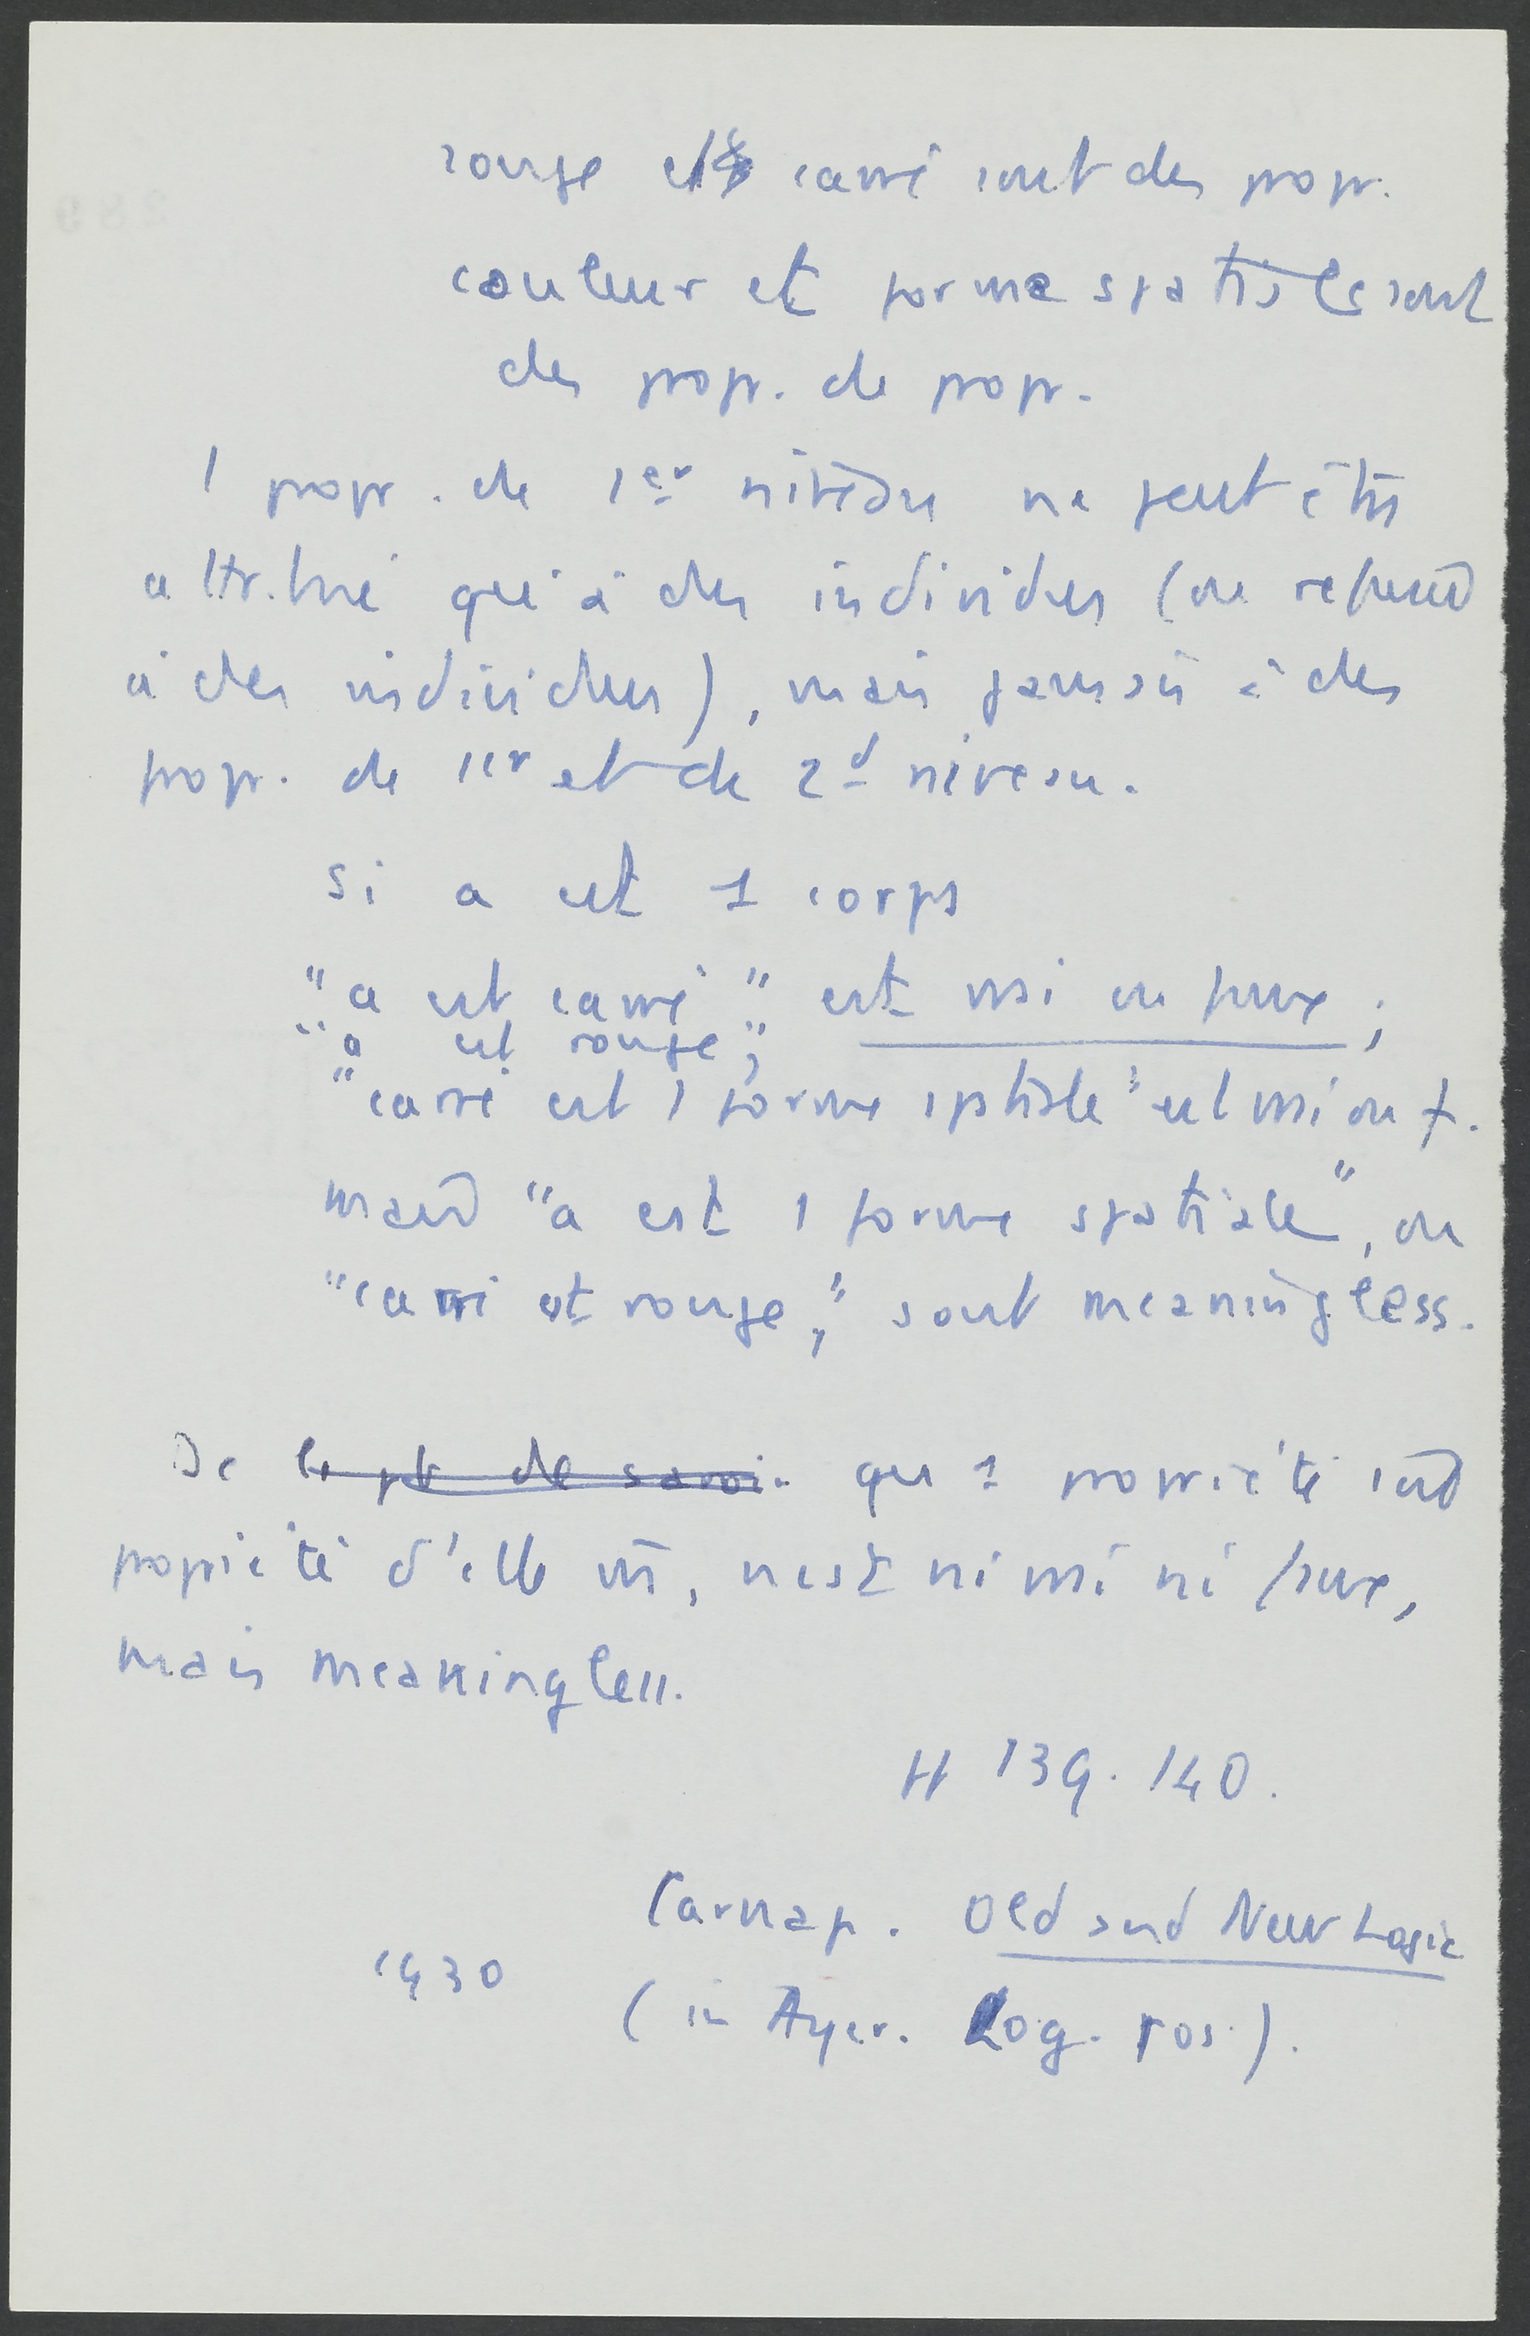 rouge et carré sont des propr.
couleur et forme spatiale sont
des propr. de propr.
1 propr. de 1er niveau ne peut être
attribué qu'à des individus (ou refusé
à des individus), mais jamais à des
propr. de 1er et de 2d niveau.
si a est 1 corps
"a est carré" est vrai ou faux ;
"a est rouge",
"carré est 1 forme spatiale" est vrai ou f.
mais "a est 1 forme spatiale", ou
"carré est rouge," sont meaningless.
De le pb de savoir que 1 propriété soit
propriété d'elle m̄, n'est ni vrai ni faux,
mais meaningless.
H 139. 140.
Carnap. Old and New Logic
1930
(in Ayer. Log. Pos.).